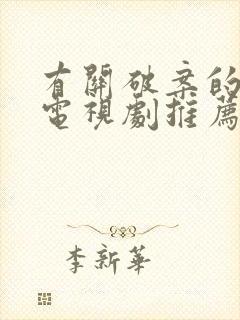 有關破案的
電視劇推薦
李新華